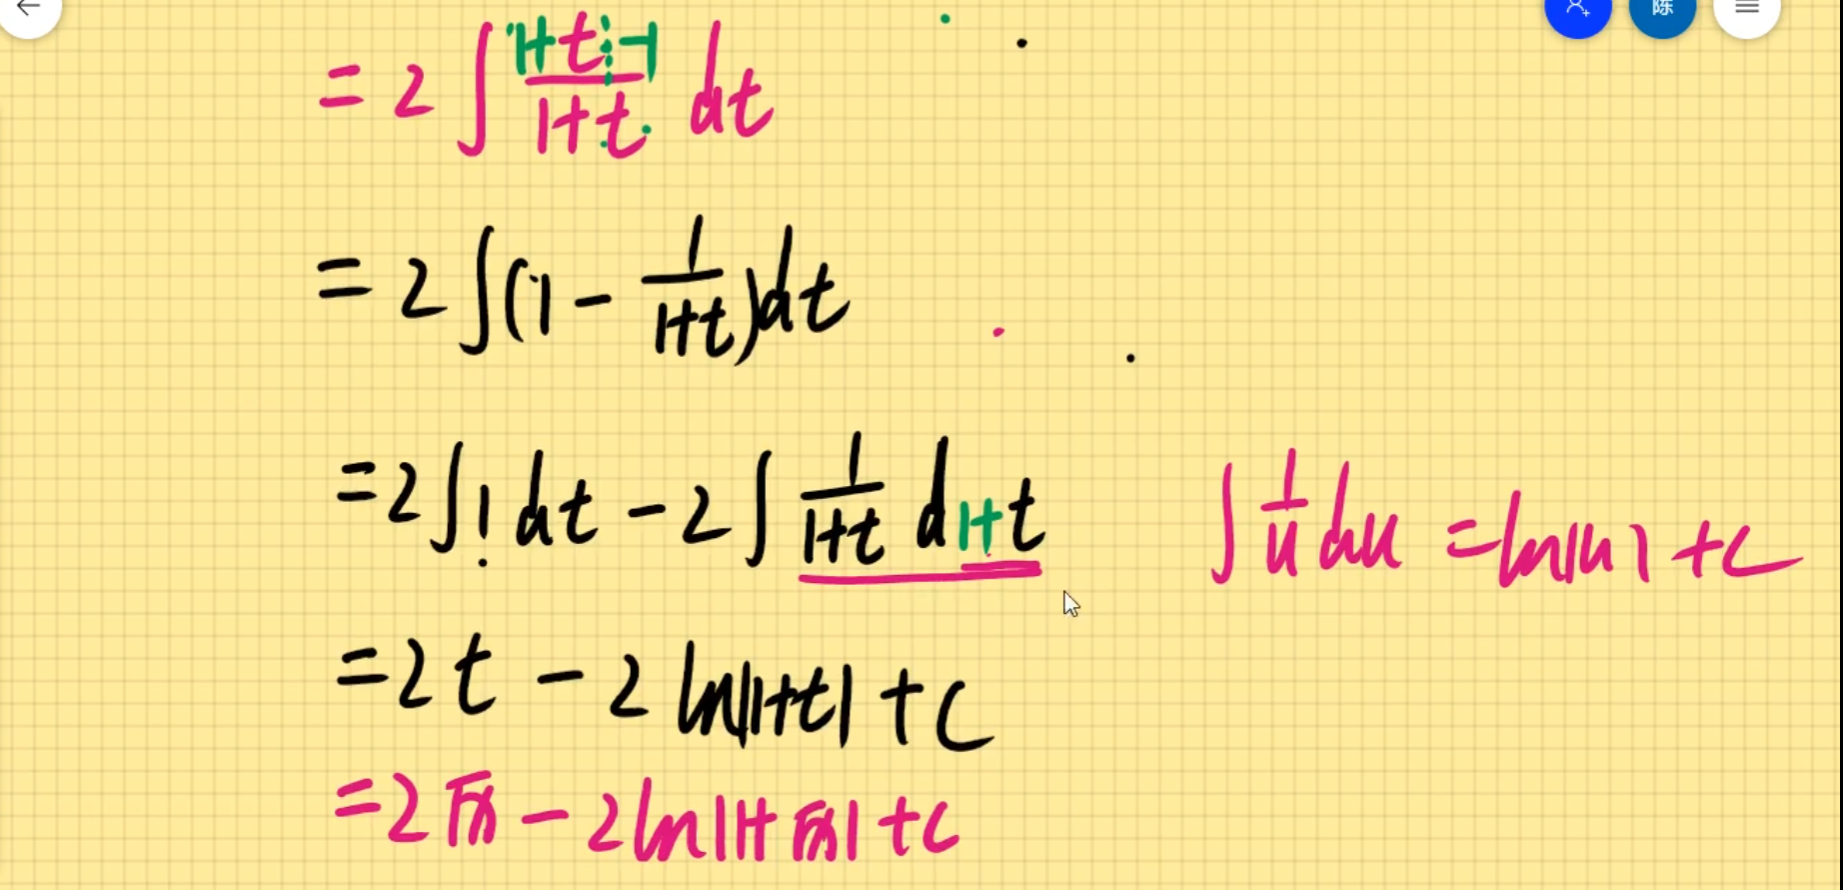 陈
= 2 ∫ (1+t-1)/(1+t) dt
= 2 ∫ (1 - 1/(1+t)) dt
= 2 ∫ 1 dt - 2 ∫ 1/(1+t) d1+t
∫ 1/u du = ln|u| + C
= 2t - 2 ln|1+t| + C
= 2√x - 2ln|1+√x| + C